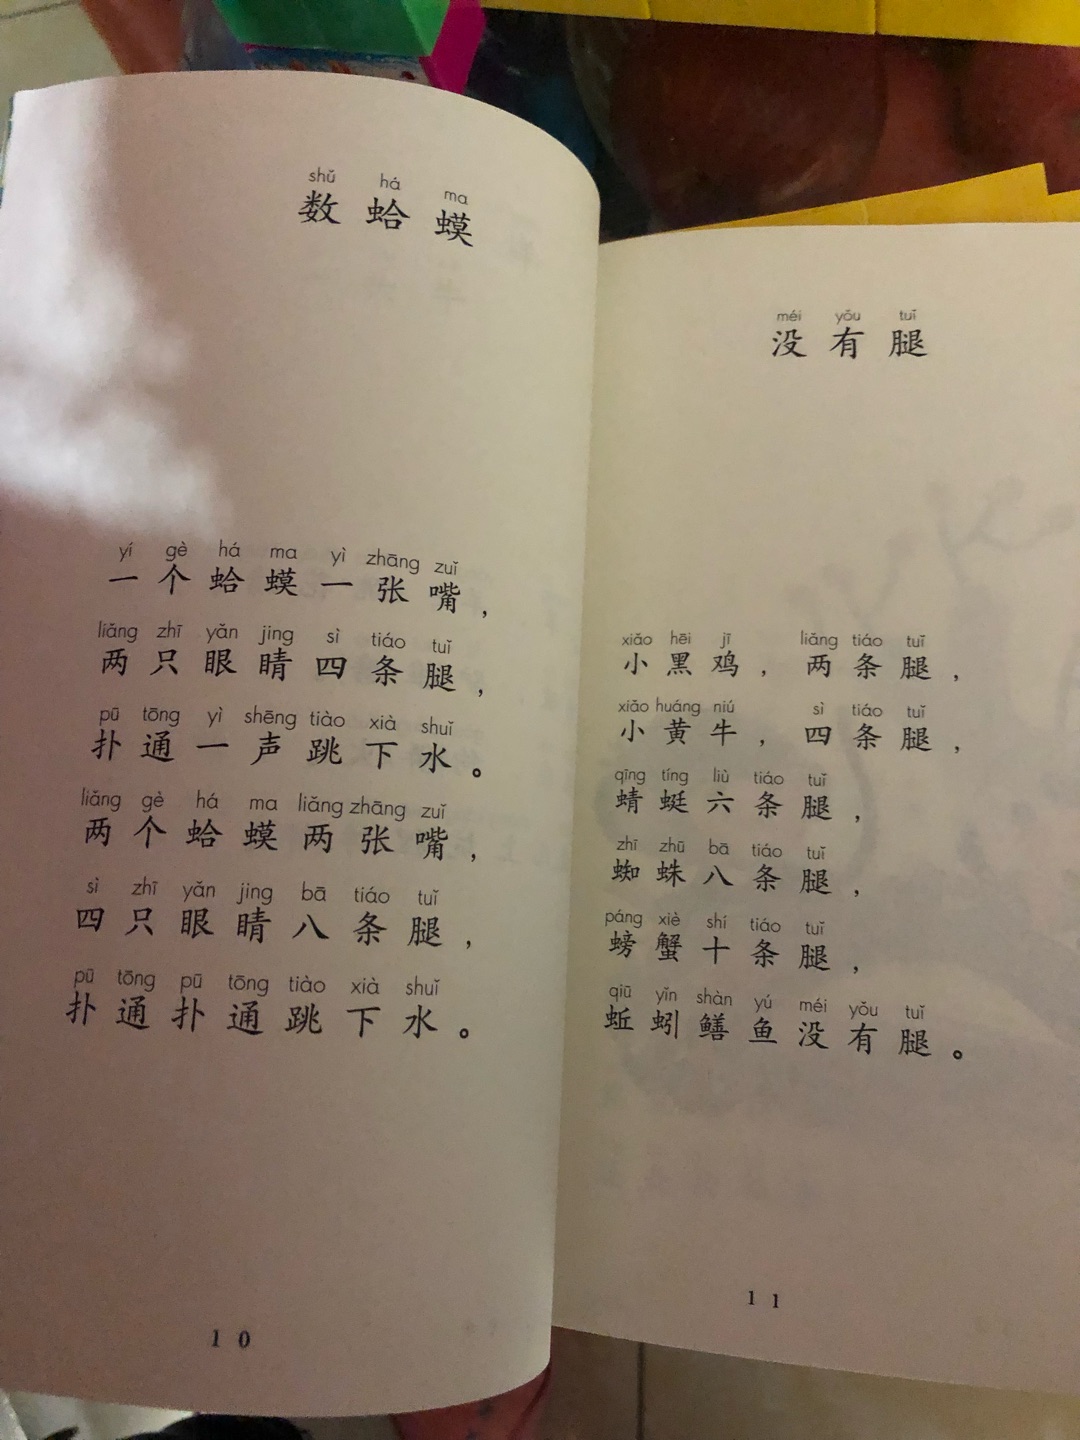 shǔ há ma
数蛤蟆
yí gè há ma yì zhāng zuǐ
一个蛤蟆一张嘴，
liǎng zhī yǎn jing sì tiáo tuǐ
两只眼睛四条腿，
pū tōng yì shēng tiào xià shuǐ
扑通一声跳下水。
liǎng gè há ma liǎng zhāng zuǐ
两个蛤蟆两张嘴，
sì zhī yǎn jing bā tiáo tuǐ
四只眼睛八条腿，
pū tōng pū tōng tiào xià shuǐ
扑通扑通跳下水。
10
méi yǒu tuǐ
没有腿
xiǎo hēi jī liǎng tiáo tuǐ
小黑鸡，两条腿，
xiǎo huáng niú sì tiáo tuǐ
小黄牛，四条腿，
qīng tíng liù tiáo tuǐ
蜻蜓六条腿，
zhī zhū bā tiáo tuǐ
蜘蛛八条腿，
páng xiè shí tiáo tuǐ
螃蟹十条腿，
qiū yǐn shàn yú méi yǒu tuǐ
蚯蚓鳝鱼没有腿。
11